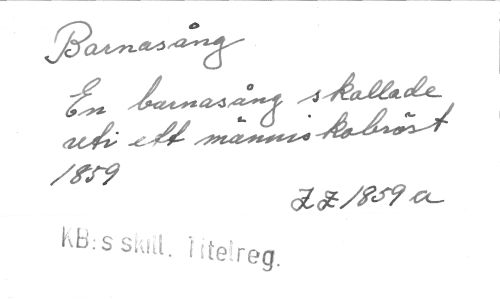 Barnasång
En barnasång skallade
uti ett människobröst
1859
ZZ 1859 a
KB:s skill. Titelreg.